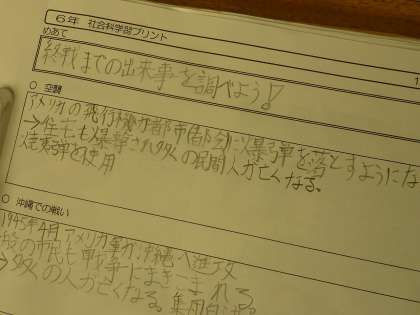 6年 社会科学習プリント
めあて
終戦までの出来事を調べよう!
1
○ 空襲
アメリカの飛行機が都市(都会)に爆弾を落とすようにな
→住宅も爆撃され多くの民間人が亡くなる。
焼夷弾を使用
○ 沖縄での戦い
1945年4月 アメリカ軍が沖縄へ進攻
の市民も戦争にまきこまれる
→多くの人が亡くなる。集団自